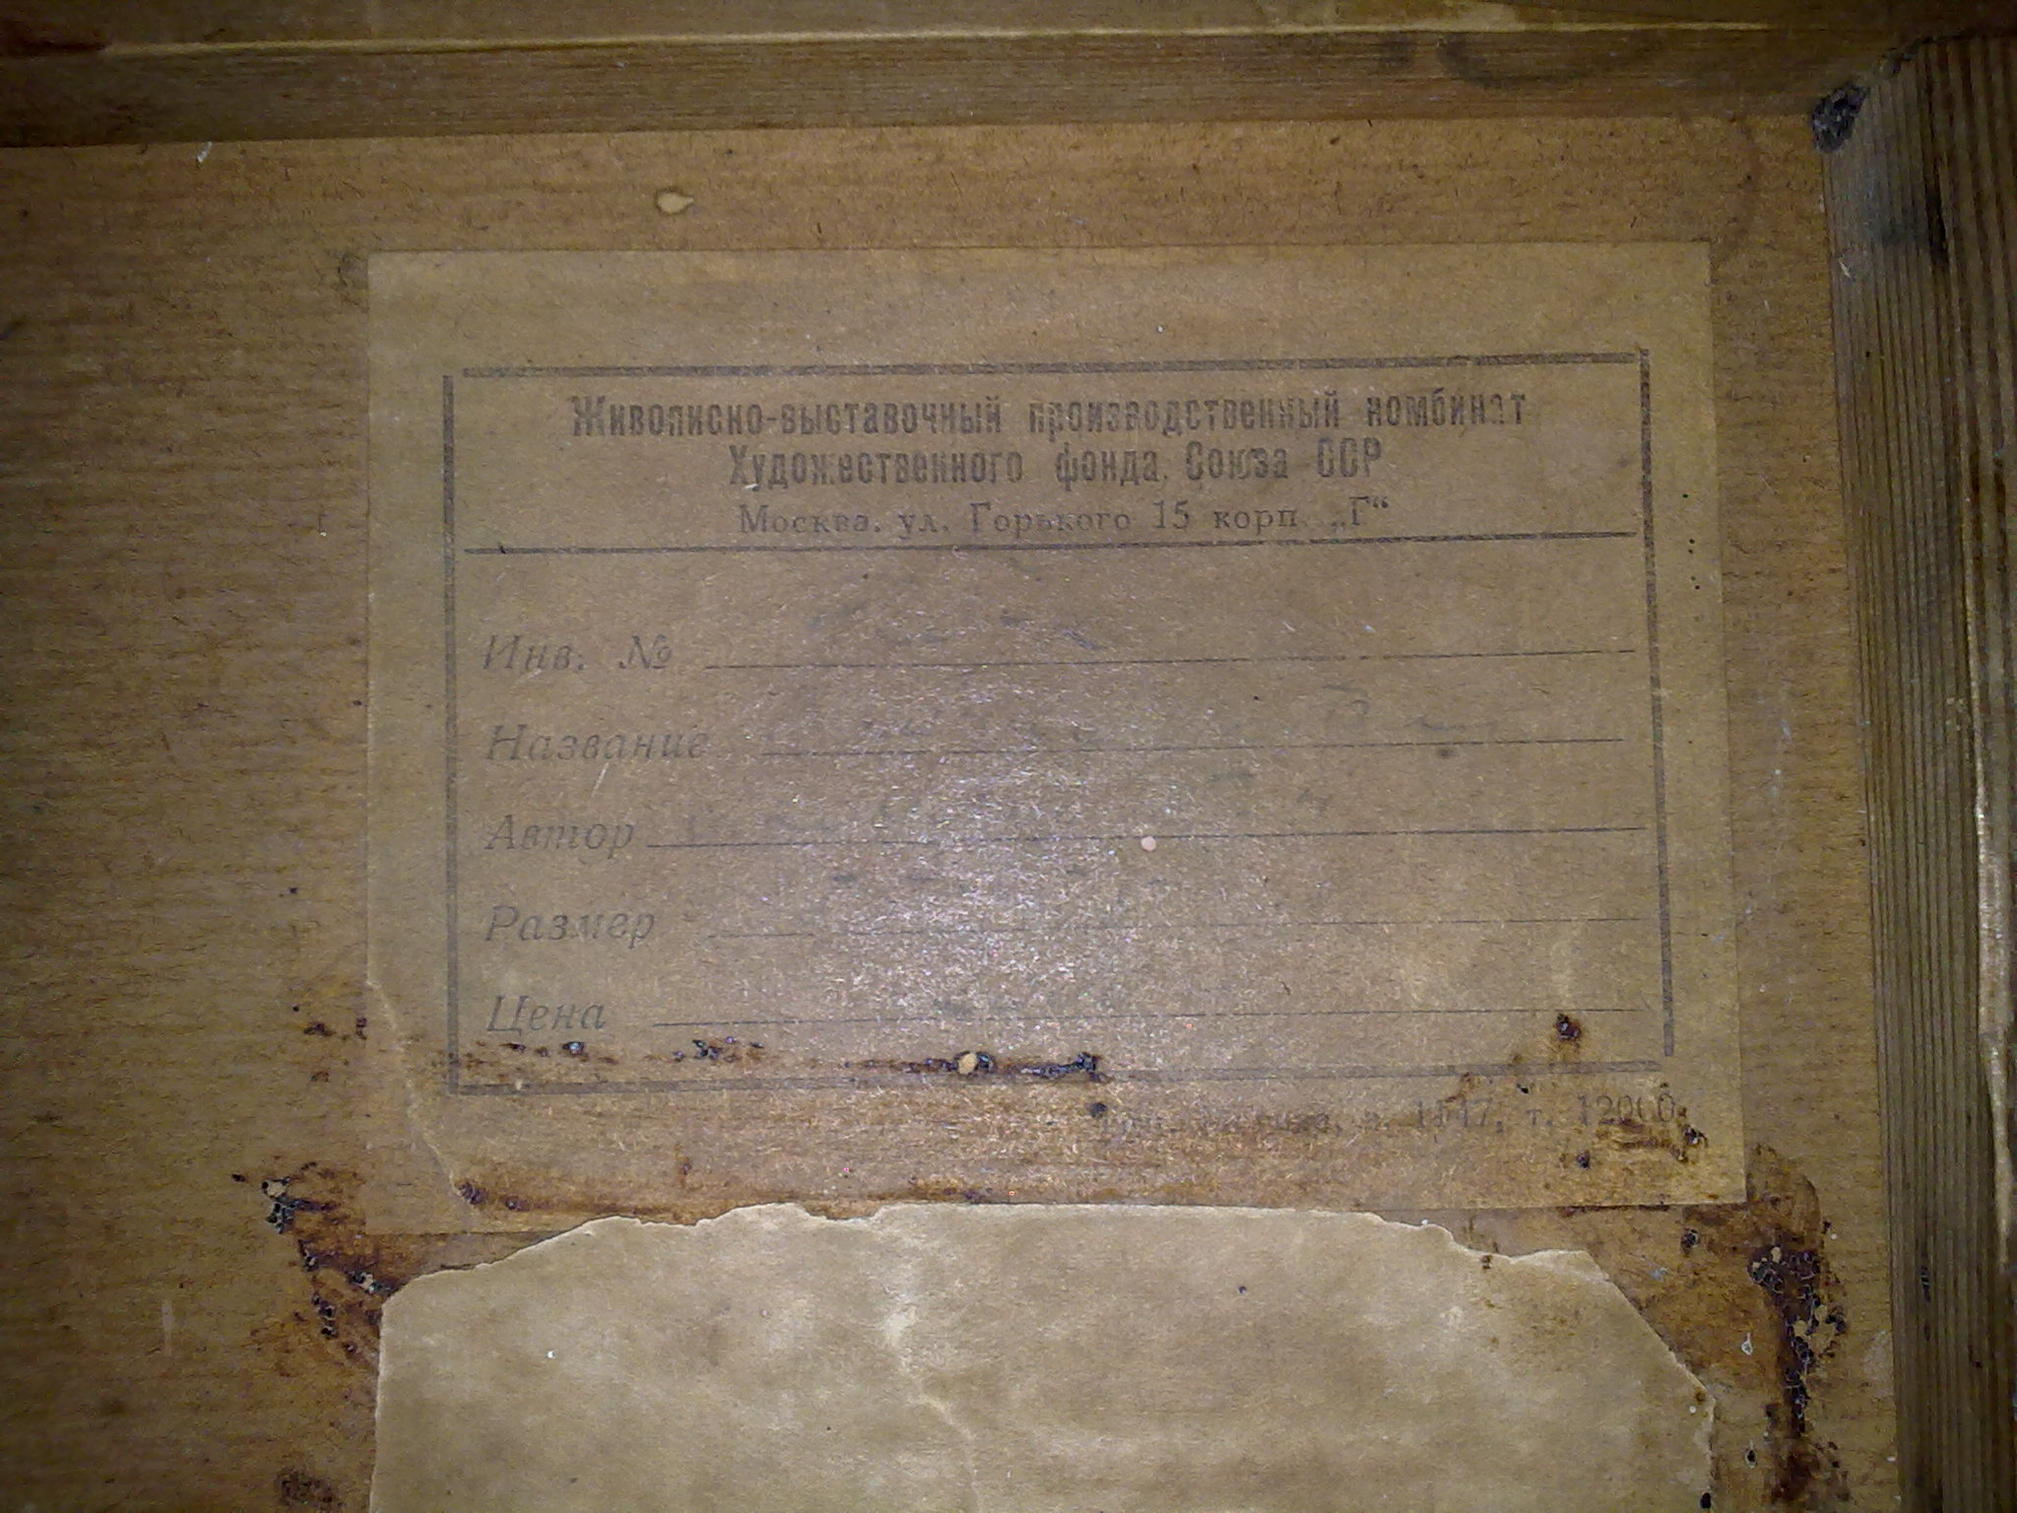 Живописно-выставочный производственный комбинат
Художественного фонда Союза ССР
Москва, ул. Горького 15 корп. „Г“
Инв. №
Название
Автор
Размер
Цена
1147, т. 12000